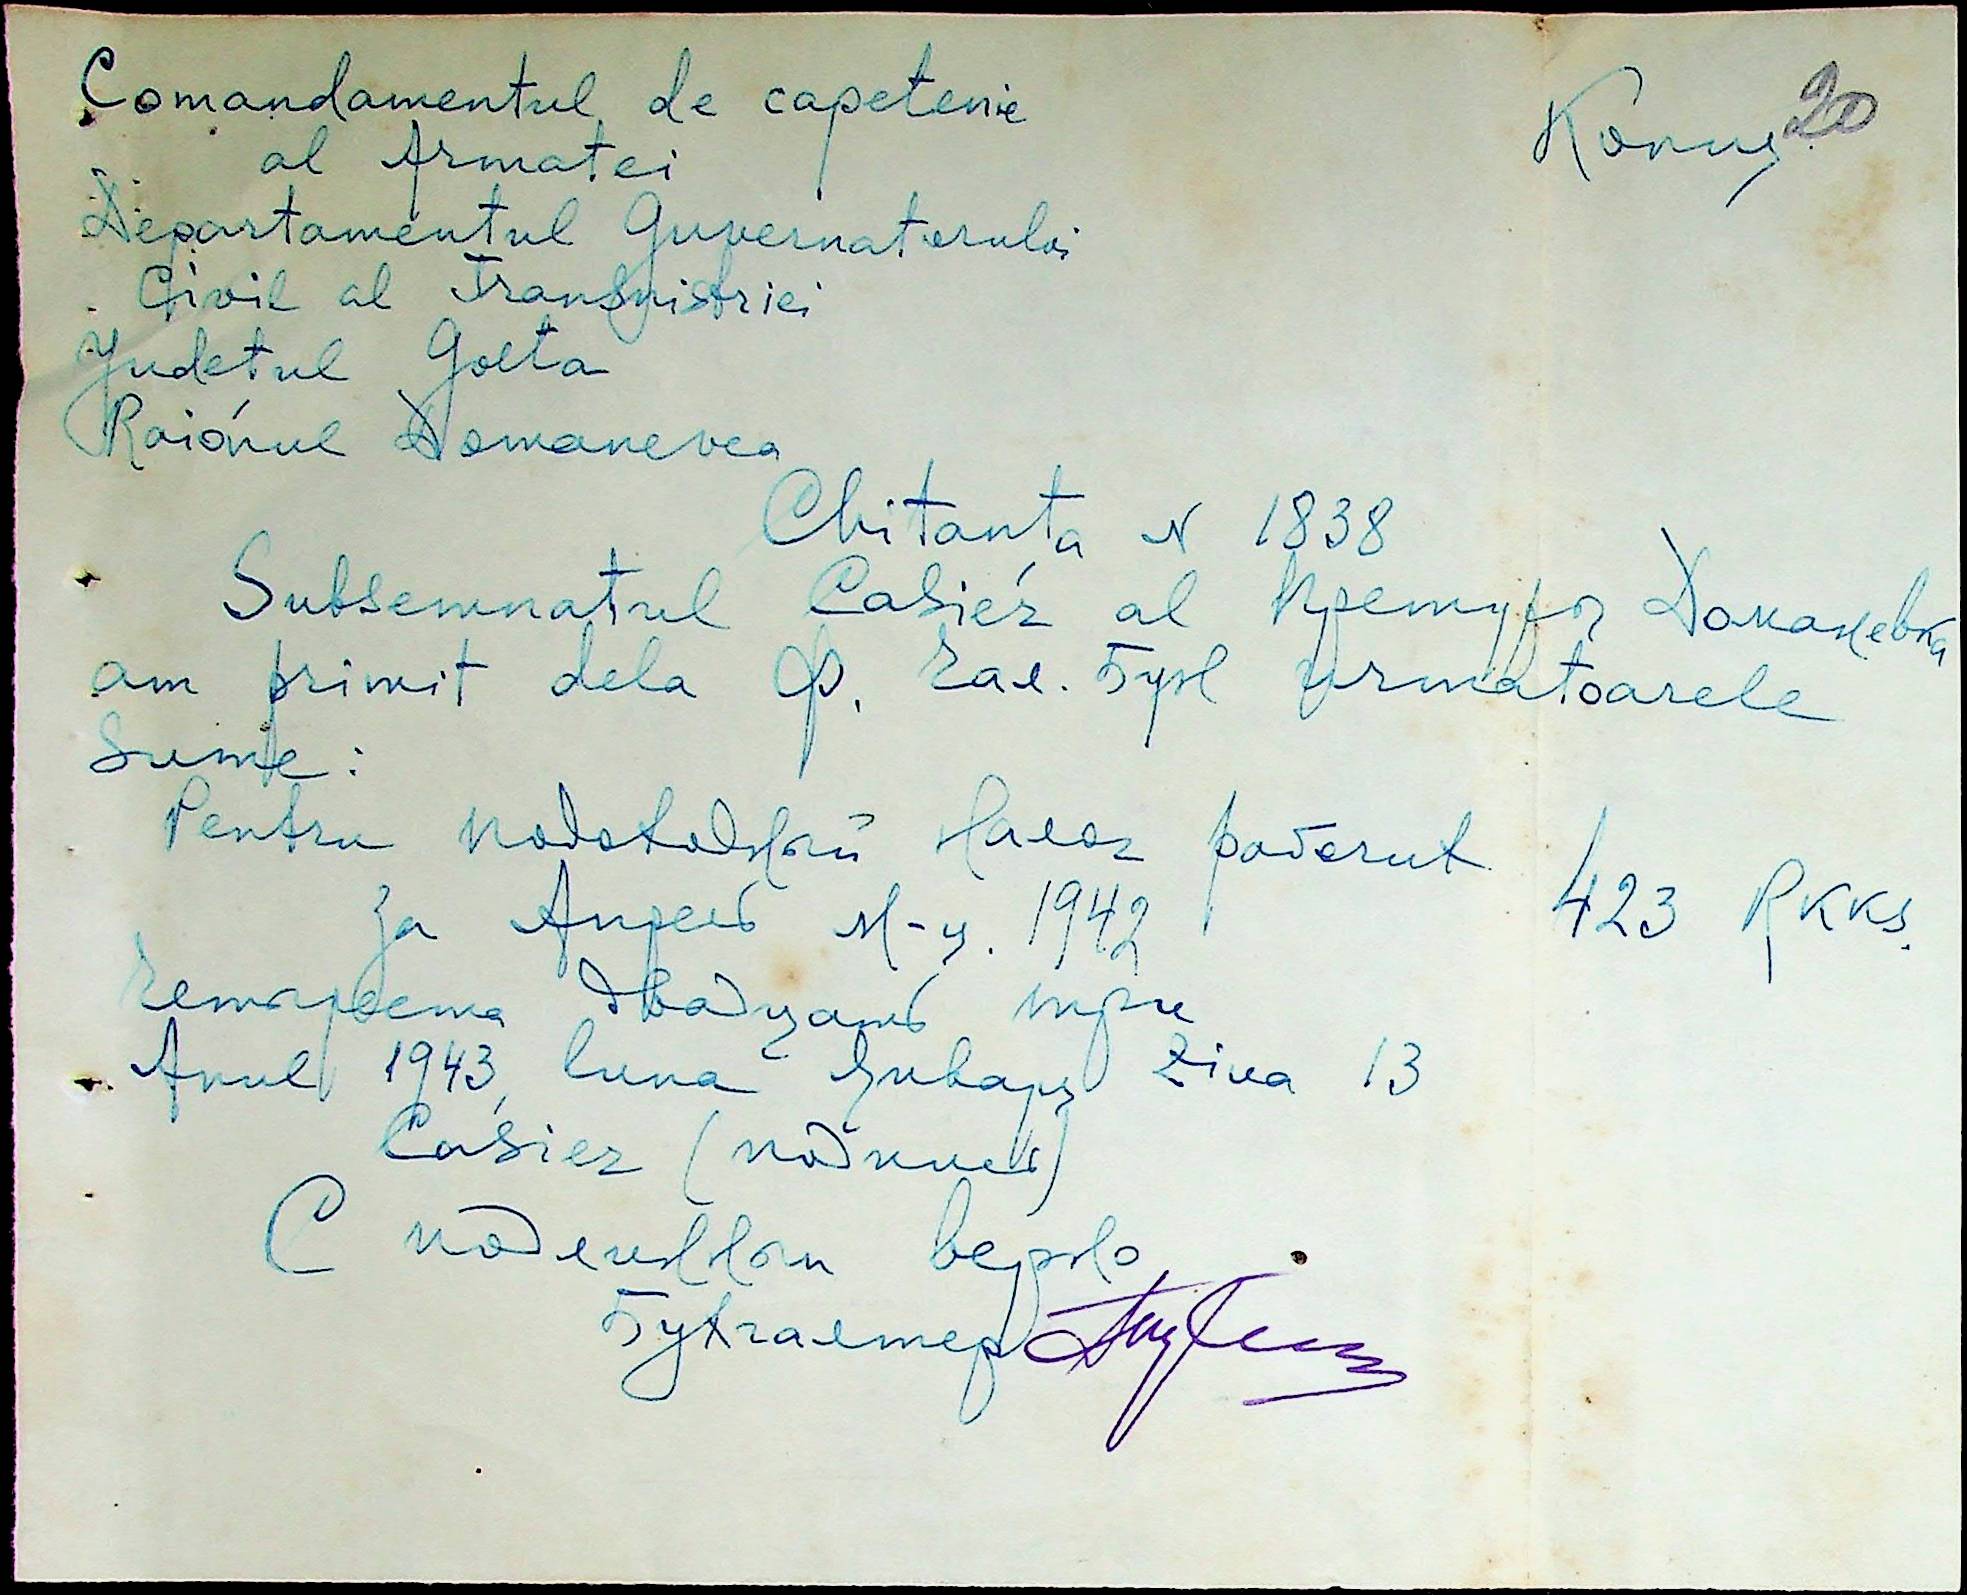 Comandamentul de capetenie
al Armatei
Копия 20
Departamentul Guvernatorului
Civil al Transnistriei
Judetul Golta
Raionul Domanevca
Chitanta N 1838
Subsemnatul Casier al Претура Доманевка
am primit dela Ф. Гал. Буг urmatoarele
sume:
Pentru подоходный налог рабочих
за Апрель м-ц. 1942 423 RKKS.
Четыреста двадцать три
Anul 1943, luna Январь Ziua 13
Casier (подпись)
С подлинным верно
Бухгалтер